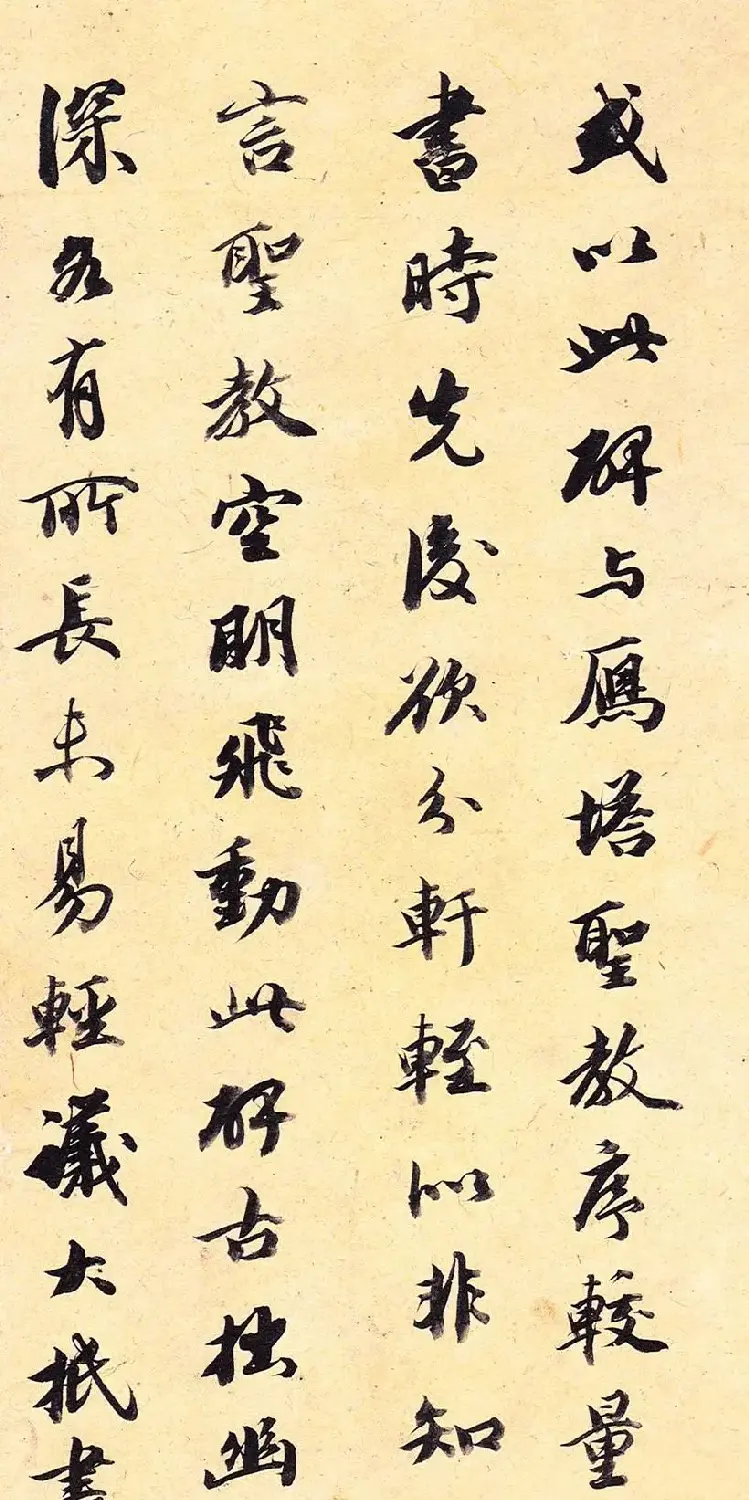 或以此碑与鴈塔聖教序較量
書時先後欲分軒輊似非知
言聖教空明飛動此碑古拙幽
深各有所長未易輕議大抵書